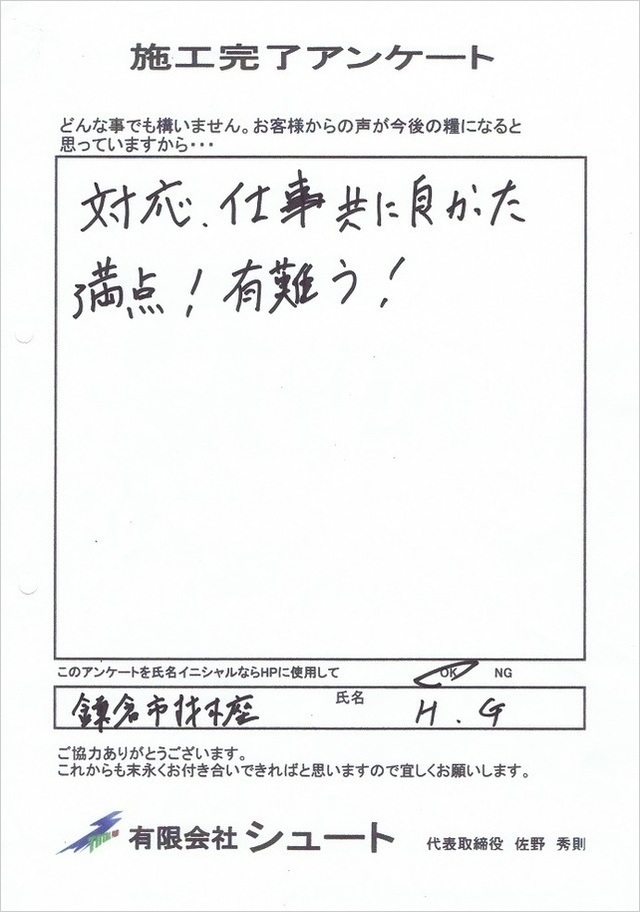 施工完了アンケート
どんな事でも構いません。お客様からの声が今後の糧になると
思っていますから・・・
対応、仕事共に良かった
満点！有難う！
このアンケートを氏名イニシャルならHPに使用して OK NG
鎌倉市材木座 氏名 H.G
ご協力ありがとうございます。
これからも末永くお付き合いできればと思いますので宜しくお願いします。
有限会社 シュート 代表取締役 佐野 秀則